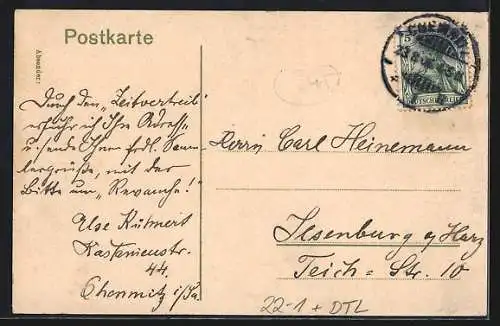 Postkarte
Absender:
Durch den „Zeitvertreib"
erfuhr ich Ihre Adresse
u. sende Ihnen frdl. Samm-
lergrüße, mit der
Bitte um „Revanche!"
Ilse Kühnert
Kastanienstr.
44.
Chemnitz i/Sa.
CHEMNITZ
5
DEUTSCHES REICH
Herrn Carl Heinemann
Ilsenburg a/Harz
Teich=Str. 10
22-1 + DTL